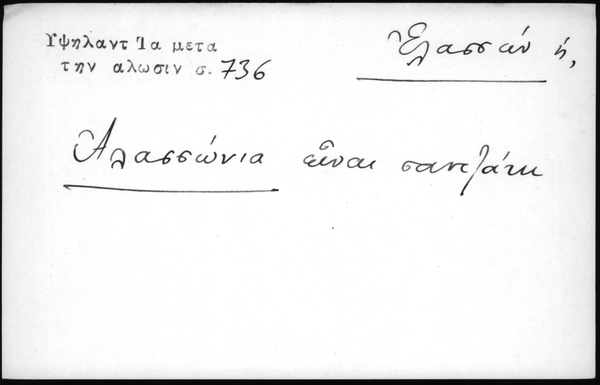 Υψηλαντ Τα μετα
την αλωσιν σ. 736
Ἐλασσών ἡ,
Ἀλασσώνια εἶναι σαντζάκι